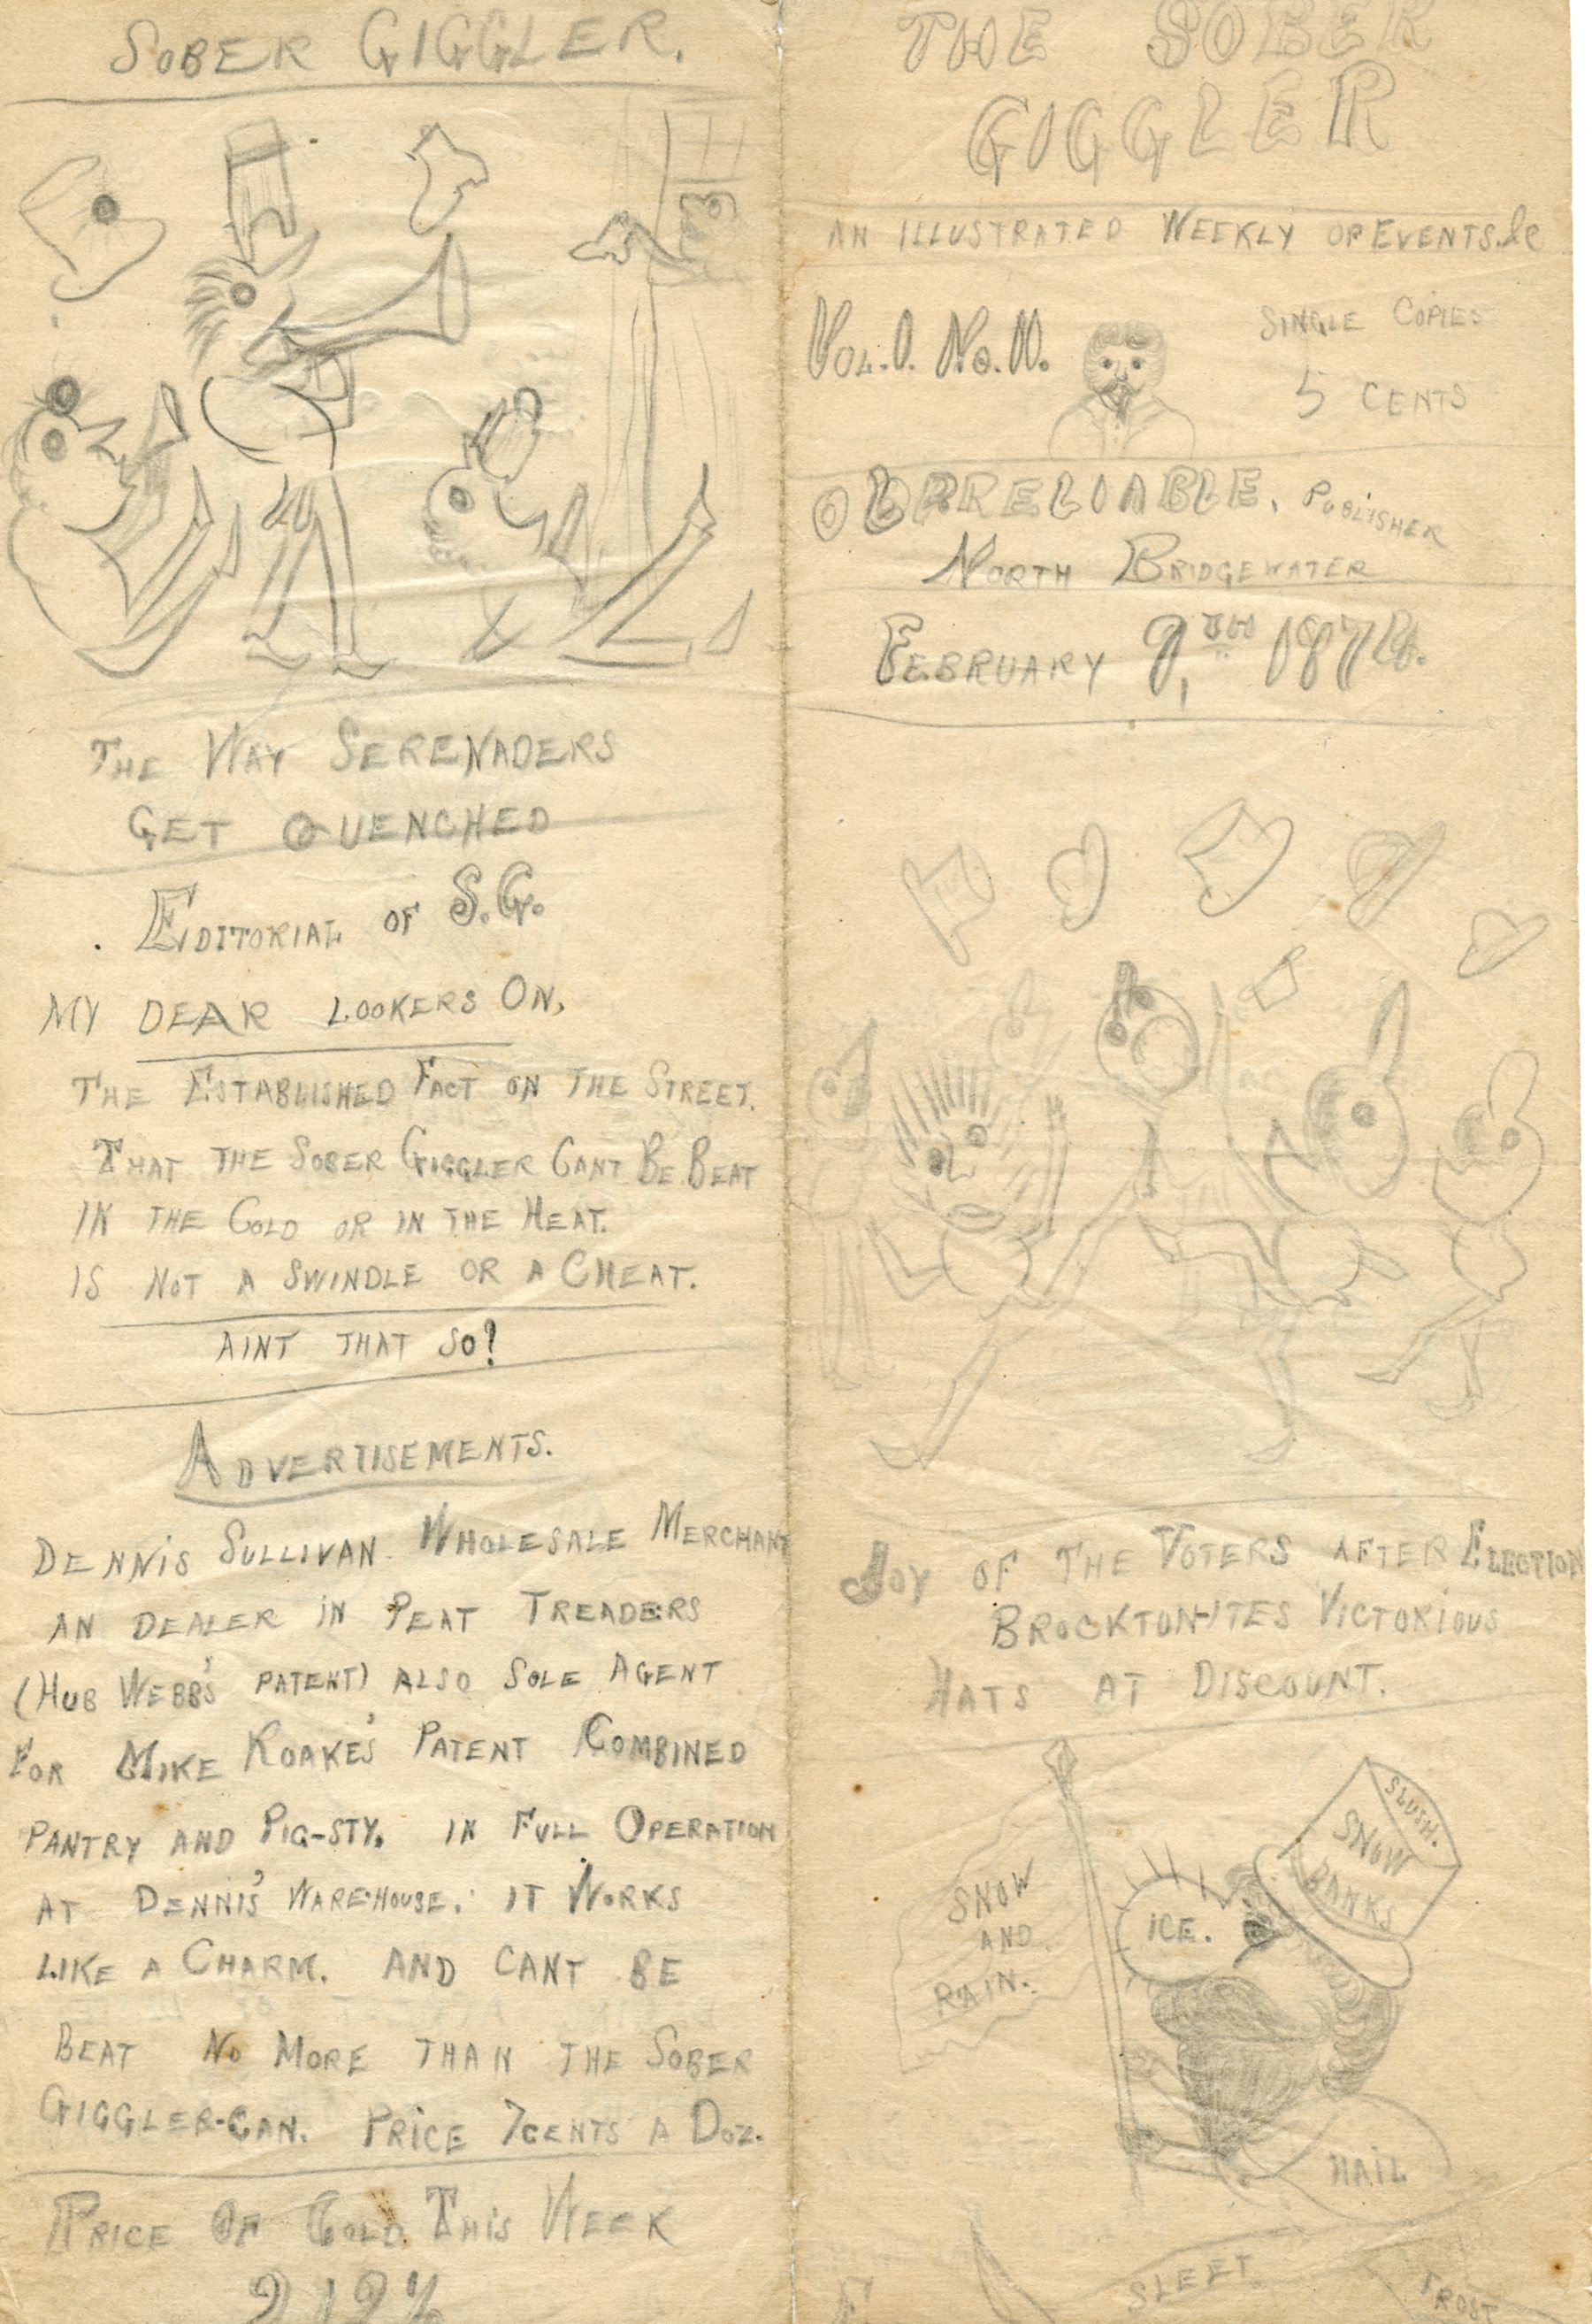 SOBER GIGGLER.
THE WAY SERENADERS
GET QUENCHED
EDITORIAL OF S.G.
MY DEAR LOOKERS ON,
THE ESTABLISHED FACT ON THE STREET.
THAT THE SOBER GIGGLER CANT BE BEAT
IN THE COLD OR IN THE HEAT.
IS NOT A SWINDLE OR A CHEAT.
AINT THAT SO?
ADVERTISEMENTS.
DENNIS SULLIVAN. WHOLESALE MERCHANT
AN DEALER IN PEAT TREADERS
(HUB WEBB'S PATENT) ALSO SOLE AGENT
FOR MIKE ROAKE'S PATENT COMBINED
PANTRY AND PIG-STY. IN FULL OPERATION
AT DENNIS' WAREHOUSE. IT WORKS
LIKE A CHARM. AND CANT BE
BEAT NO MORE THAN THE SOBER
GIGGLER-CAN. PRICE 7CENTS A DOZ.
PRICE OF GOLD THIS WEEK
THE SOBER
GIGGLER
AN ILLUSTRATED WEEKLY OF EVENTS.&c
VOL.I. NO.
SINGLE COPIES
5 CENTS
OLD RELIABLE, PUBLISHER
NORTH BRIDGEWATER
FEBRUARY 9,TH 1874.
JOY OF THE VOTERS AFTER ELECTION
BROCKTON-ITES VICTORIOUS
HATS AT DISCOUNT.
SLUSH.
SNOW
BANKS
SNOW
AND
RAIN.
ICE.
HAIL
SLEET
FROST